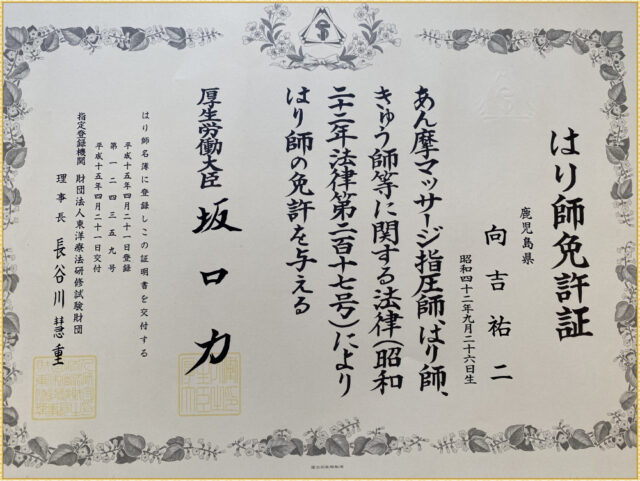 はり師免許証
鹿児島県
向吉祐二
昭和四十二年九月二十六日生
あん摩マッサージ指圧師、はり師、
きゅう師等に関する法律(昭和
二十二年法律第二百十七号)により
はり師の免許を与える
厚生労働大臣 坂口力
はり師名簿に登録しこの証明書を交付する
平成十五年四月二十一日登録
第一二四三五九号
平成十五年四月二十一日交付
指定登録機関 財団法人東洋療法研修試験財団
理事長 長谷川慧重